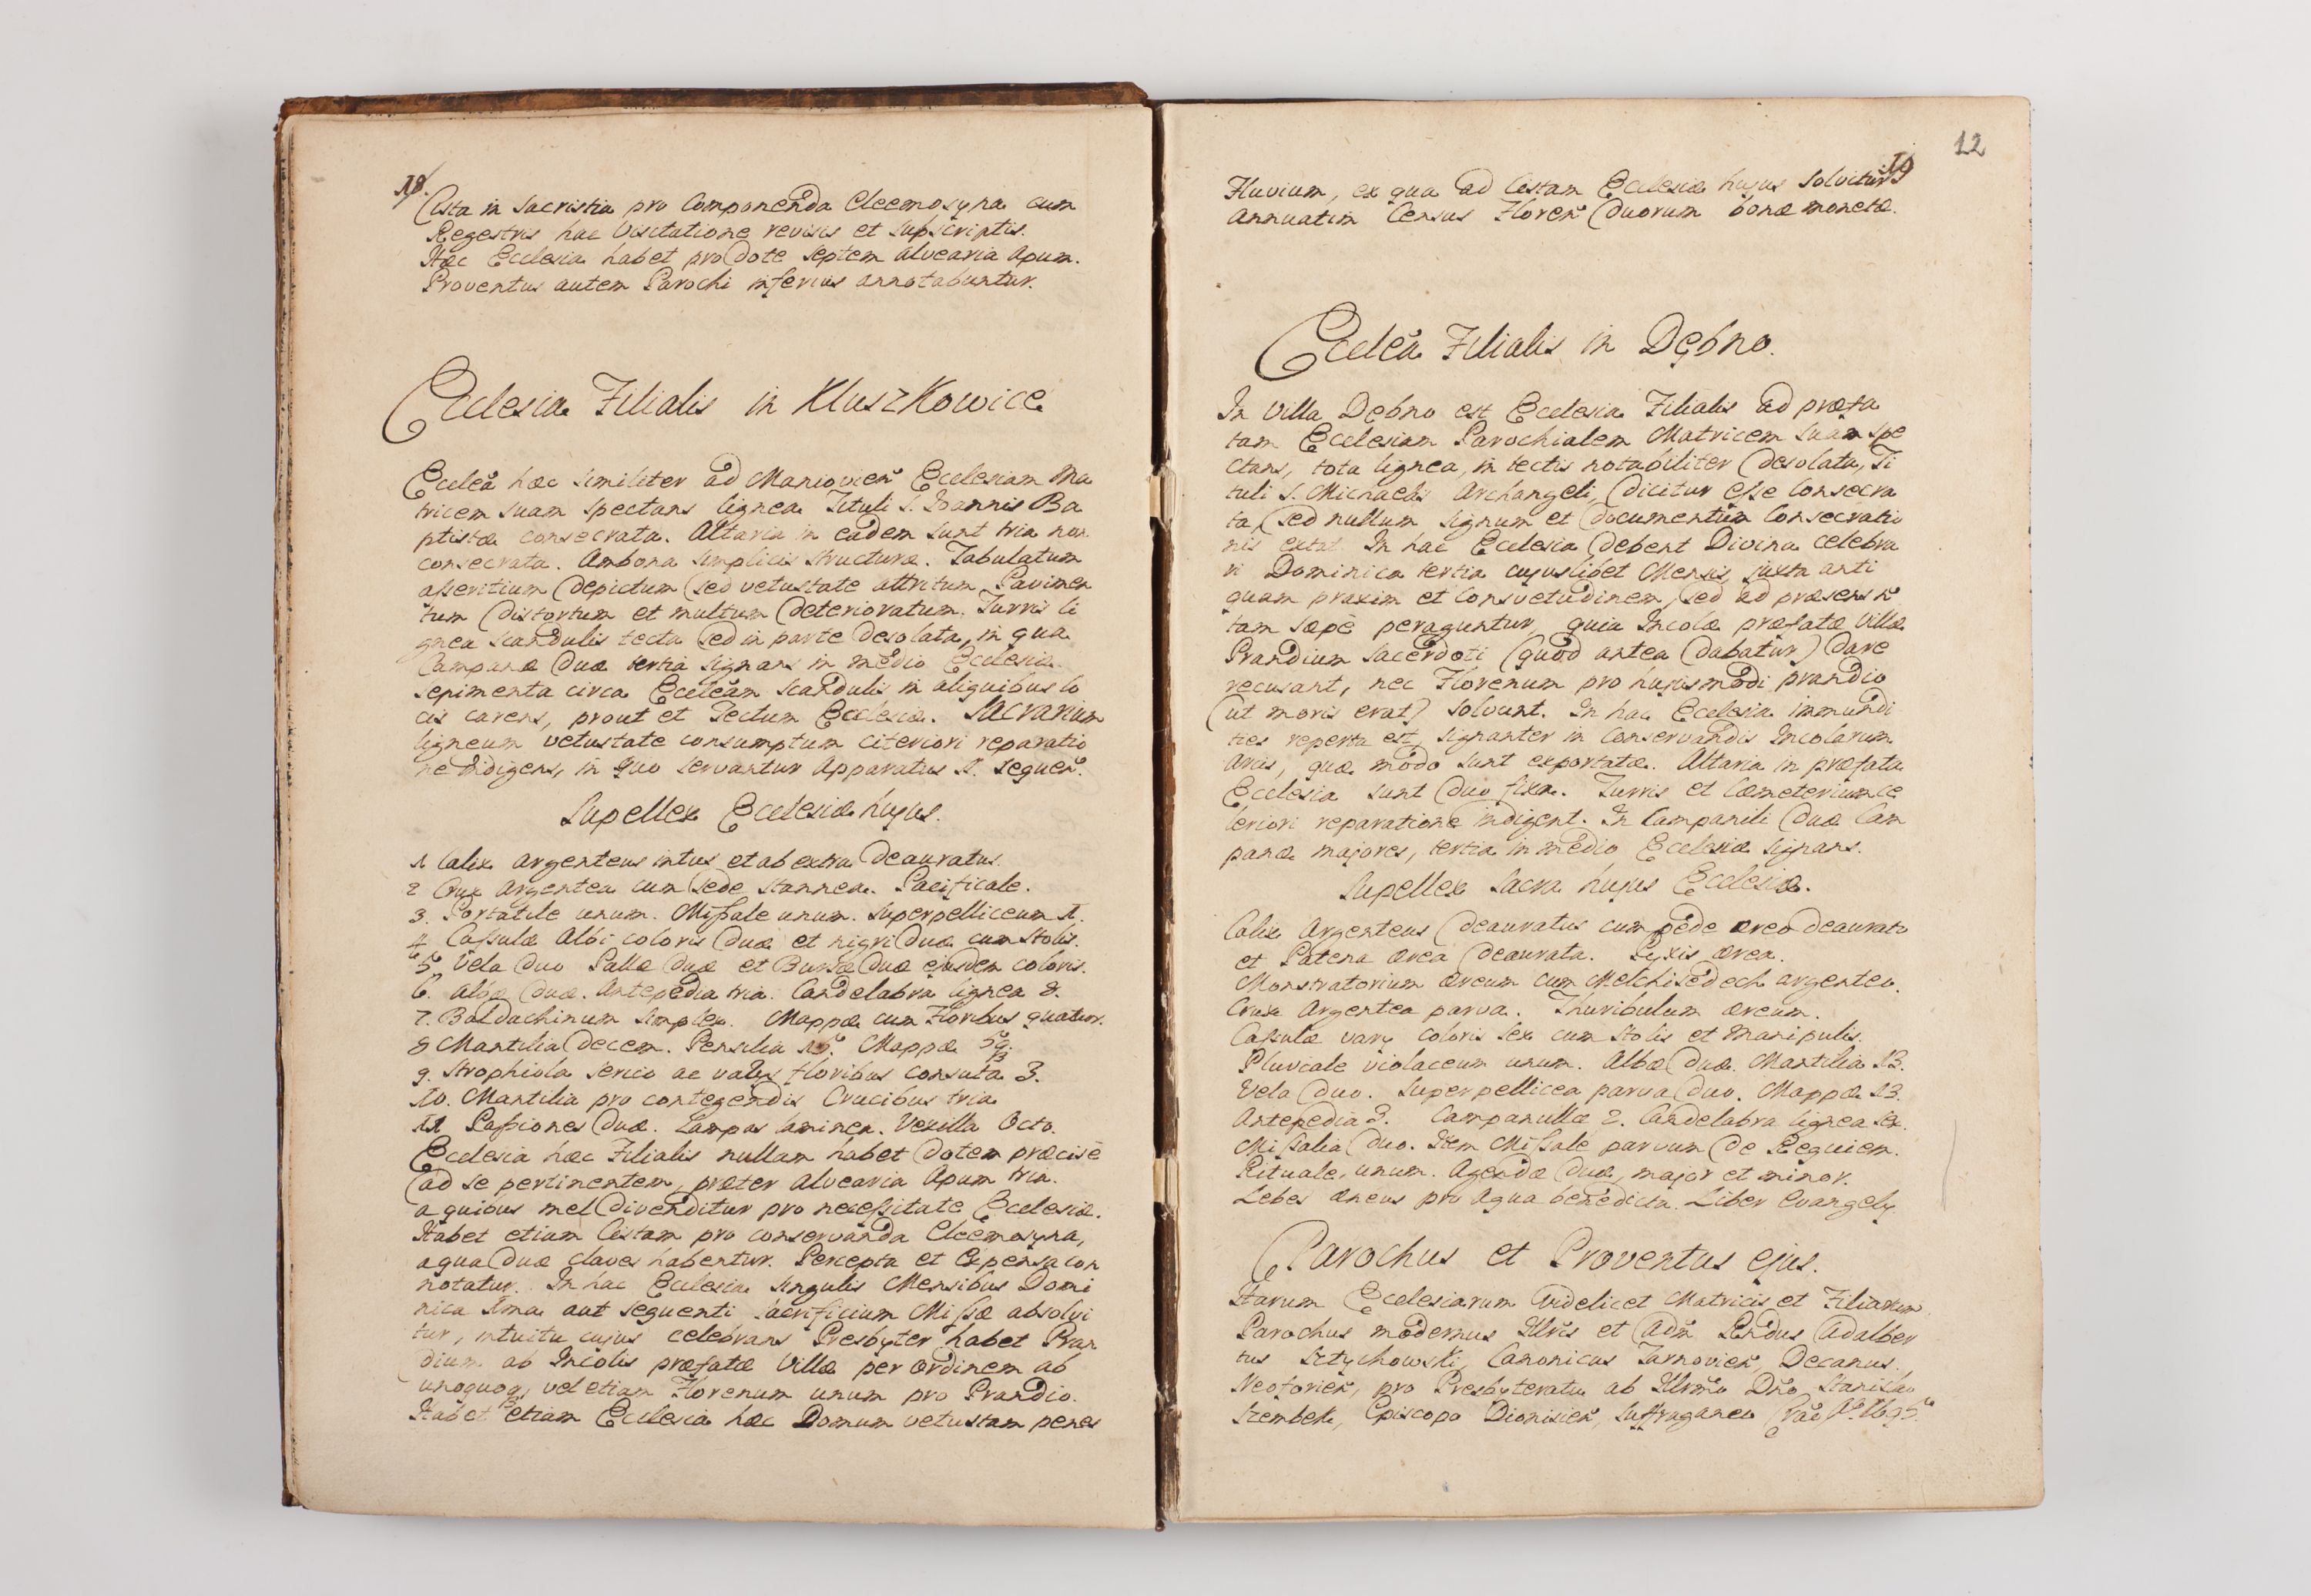 18.
Cista in Sacristia pro Componenda Eleemosyna cum
Regestris hac Visitatione revisis et subscriptis.
Hæc Ecclesia habet pro Dote septem alvearia Apum.
Proventus autem Parochi inferius annotabuntur.
Ecclesia Filialis in Kluszkowice
Eccleã hæc similiter ad Maniovien Ecclesiam Ma
tricem suam spectans lignea Tituli S. Ioannis Ba
ptistæ consecrata. Altaria in eadem sunt tria non
consecrata. Ambona simplicis structuræ. Tabulatum
asseritium Depictum sed vetustate attritum Pavimen
tum Distortum et multum Deterioratum. Turris li
gnea scandulis tecta sed in parte Desolata, in qua
Campanæ Duæ tertia signans in medio Ecclesiæ
sepimenta circa Eccleãm scandulis in aliquibus lo
cis carens, prout et Tectum Ecclesiæ. Sacrarium
ligneum vetustate consumptum citeriori reparatio
ne indigens, in quo servantur Apparatus S. sequen.
Supellex Ecclesiæ hujus.
1 Calix argenteus intus et ab extra Deauratus.
2 Crux Argentea cum sede stannea. Pacificale.
3. Portatile unum. Missale unum. Superpelliceum 1.
4 Cassulæ Albi coloris Duæ et nigri Duæ cum stolis.
5 Vela Duo Pallæ Duæ et Bursæ Duæ ejusdem coloris.
6. Albæ Duæ. Antepedia tria. Candelabra lignea 8.
7. Baldachinum simplex. Mappæ cum Floribus quatuor.
8 Mantilia Decem. Pensilia 15. Mappæ 59.
9. Strophiola serico ac varys floribus consuta 3.
10. Mantilia pro contegendis Crucibus tria
11 Passiones Duæ. Lampas laminea. Vexilla Octo.
Ecclesia hæc Filialis nullam habet Dotem præcise
ad se pertinentem, præter alvearia Apum tria.
a quibus mel Divenditur pro necessitate Ecclesiæ.
Habet etiam Cistam pro conservanda Eleemosyna,
a qua Duæ claves habentur. Percepta et Expensa con
notatur. In hac Ecclesia singulis Mensibus Domi
nica 1ma aut sequenti sacrificium Missæ absolvi
tur, intuitu cujus celebrans Presbyter habet Pran
dium ab Incolis præfatæ Villæ per ordinem ab
unoquoq, vel etiam Florenum unum pro Prandio.
Habet etiam Ecclesia hæc Domum vetustam penes
12
19
Fluvium, ex qua ad Cistam Ecclesiæ hujus solvitur
annuatim Census Floren Duorum bonæ monetæ.
Eccleã Filialis in Dębno.
In Villa Dębno est Ecclesia Filialis ad præfa
tam Ecclesiam Parochialem Matricem suam spe
ctans, tota lignea, in tectis notabiliter Desolata, Ti
tuli S. Michaelis Archangeli, Dicitur esse Consecra
ta, sed nullum signum et Documentum Consecratio
nis extat. In hac Ecclesia Debent Divina celebra
ri Dominica tertia cujuslibet Mensis, juxta anti
quam praxim et Consvetudinem, sed ad præsens ñ
tam sæpe peraguntur, quia Incolæ præfatæ Villæ
Prandium Sacerdoti (quod antea Dabatur) Dare
recusant, nec Florenum pro hujusmodi prandio
(ut moris erat) solvunt. In hac Ecclesia immundi
ties reperta est, signanter in Conservandis Incolarum
arcis, quæ modo sunt exportatæ. Altaria in præfata
Ecclesia sunt Duo fixa. Turris et Cæmeterium ce
leriori reparatione indigent. In Campanili Duæ Cam
panæ majores, tertia in medio Ecclesiæ signans.
Supellex Sacra hujus Ecclesiæ.
Calix Argenteus Deauratus cum pede æreo Deaurato
et Patena ærea Deaurata. Pyxis ærea.
Monstratorium æreum cum Melchisedech argenteo.
Crux Argentea parva. Thuribulum æreum.
Cassulæ vary coloris sex cum stolis et Manipulis.
Pluviale violaceum unum. Albæ Duæ. Mantilia 13.
Vela Duo. Superpellicea parva Duo. Mappæ 13.
Antepedia 3. Campanullæ 2. Candelabra lignea sex.
Missalia Duo. Item Missale parvum De Requiem.
Rituale unum. Agendæ Duæ, major et minor.
Lebes æneus pro Aqua benedicta. Liber Evangely
Parochus et Proventus ejus.
Harum Ecclesiarum videlicet Matricis et Filiarum
Parochus modernus Illris et Adm Rndus Adalber
tus Sztychowski, Canonicus Tarnovien, Decanus
Neoforien, pro Presbyteratu ab Illrmo Dno Stanislao
Szembek, Episcopo Dionisien, Suffraganeo Crac, Ao 1695